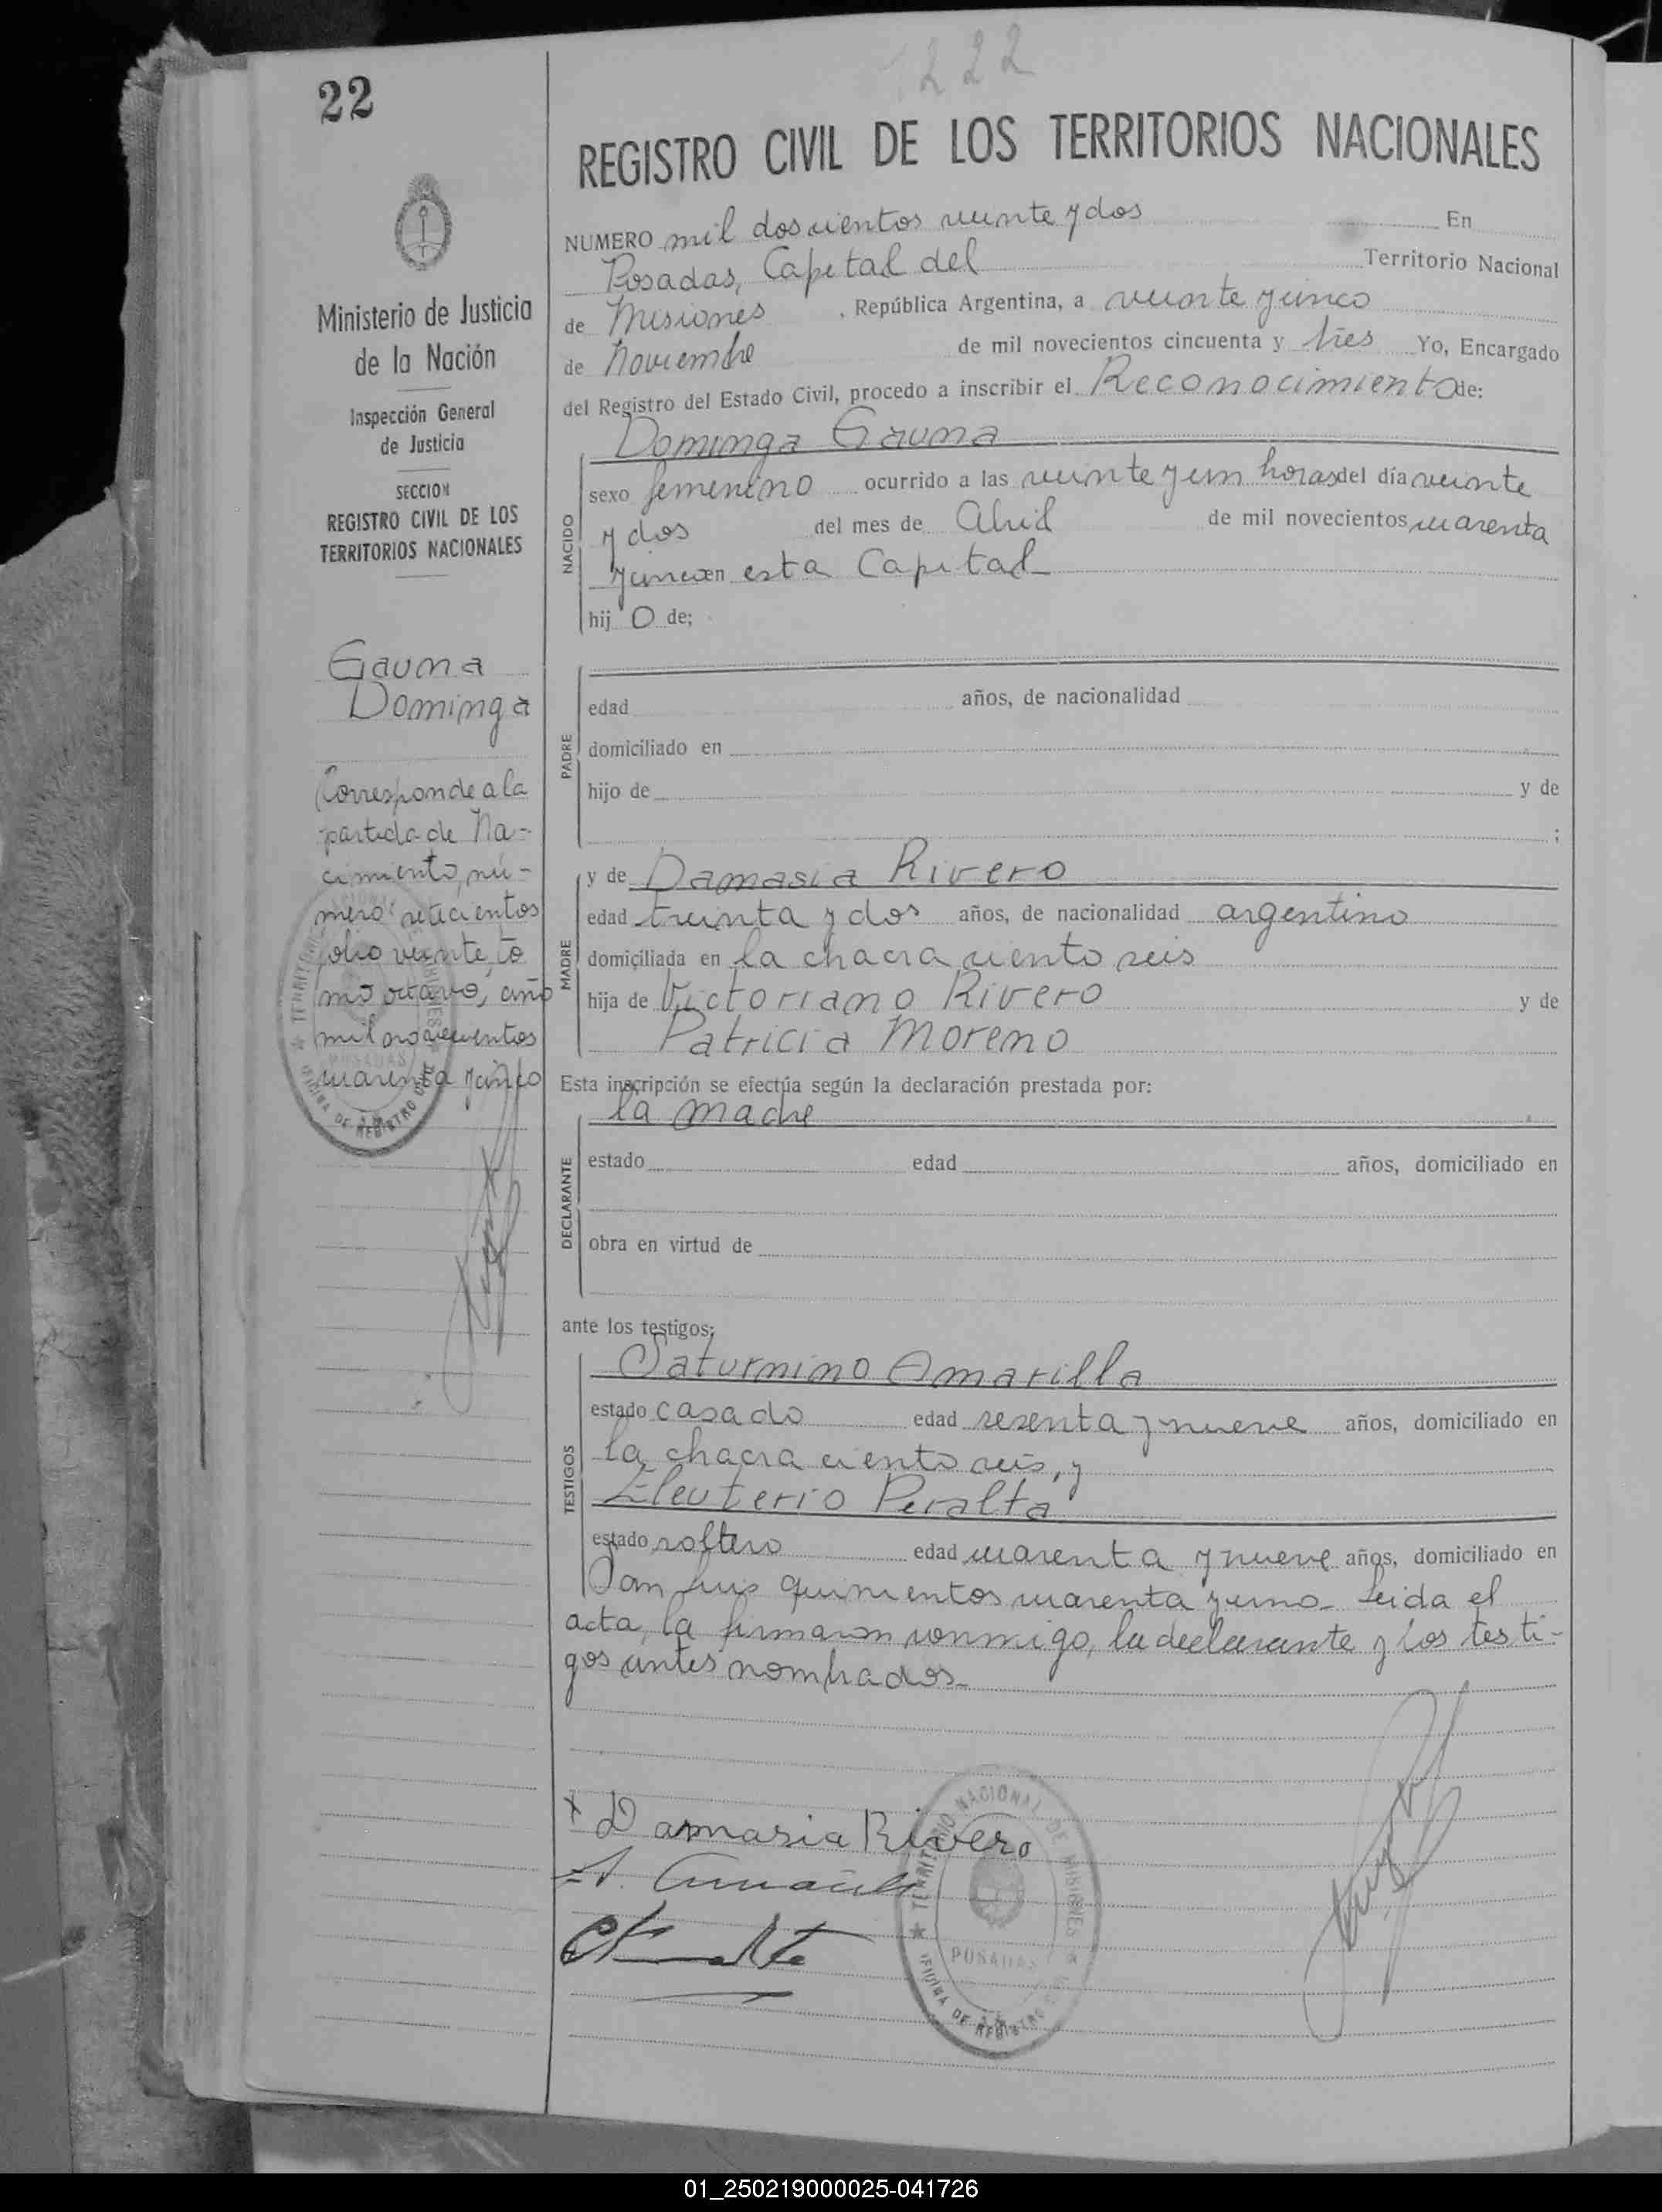 1222
22
REGISTRO CIVIL DE LOS TERRITORIOS NACIONALES
NUMERO mil doscientos veinte y dos En
Posadas, Capital del Territorio Nacional
de Misiones , República Argentina, a veinte y cinco
de Noviembre de mil novecientos cincuenta y tres Yo, Encargado
del Registro del Estado Civil, procedo a inscribir el Reconocimiento de:
Dominga Gauna
NACIDO
sexo femenino ocurrido a las veinte y un horas del día veinte
y dos del mes de Abril de mil novecientos cuarenta
y cinco en esta Capital
hij O de;
PADRE
edad años, de nacionalidad
domiciliado en
hijo de y de
;
MADRE
y de Damasia Rivero
edad treinta y dos años, de nacionalidad argentino
domiciliada en la chacra ciento seis
hija de Victoriano Rivero y de
Patricia Moreno
Esta inscripción se efectúa según la declaración prestada por:
la madre
DECLARANTE
estado edad años, domiciliado en
obra en virtud de
ante los testigos;
TESTIGOS
Saturnino Amarilla
estado casado edad sesenta y nueve años, domiciliado en
la chacra ciento seis, y
Eleuterio Peralta
estado soltero edad cuarenta y nueve años, domiciliado en
San Luis quinientos cuarenta y uno. Leida el
acta, la firmaron conmigo, la declarante y los testi-
gos antes nombrados.
x Damasia Rivero
TERRITORIO NACIONAL DE MISIONES
POSADAS
OFICINA DE REGISTRO CIVIL
Ministerio de Justicia
de la Nación
Inspección General
de Justicia
SECCION
REGISTRO CIVIL DE LOS
TERRITORIOS NACIONALES
Gauna
Dominga
Corresponde a la
partida de Na-
cimiento, nú-
mero setecientos
folio veinte, to
mo octavo, año
mil novecientos
cuarenta y cinco
POSADAS
OFICINA DE REGISTRO CIVIL
01_250219000025-041726